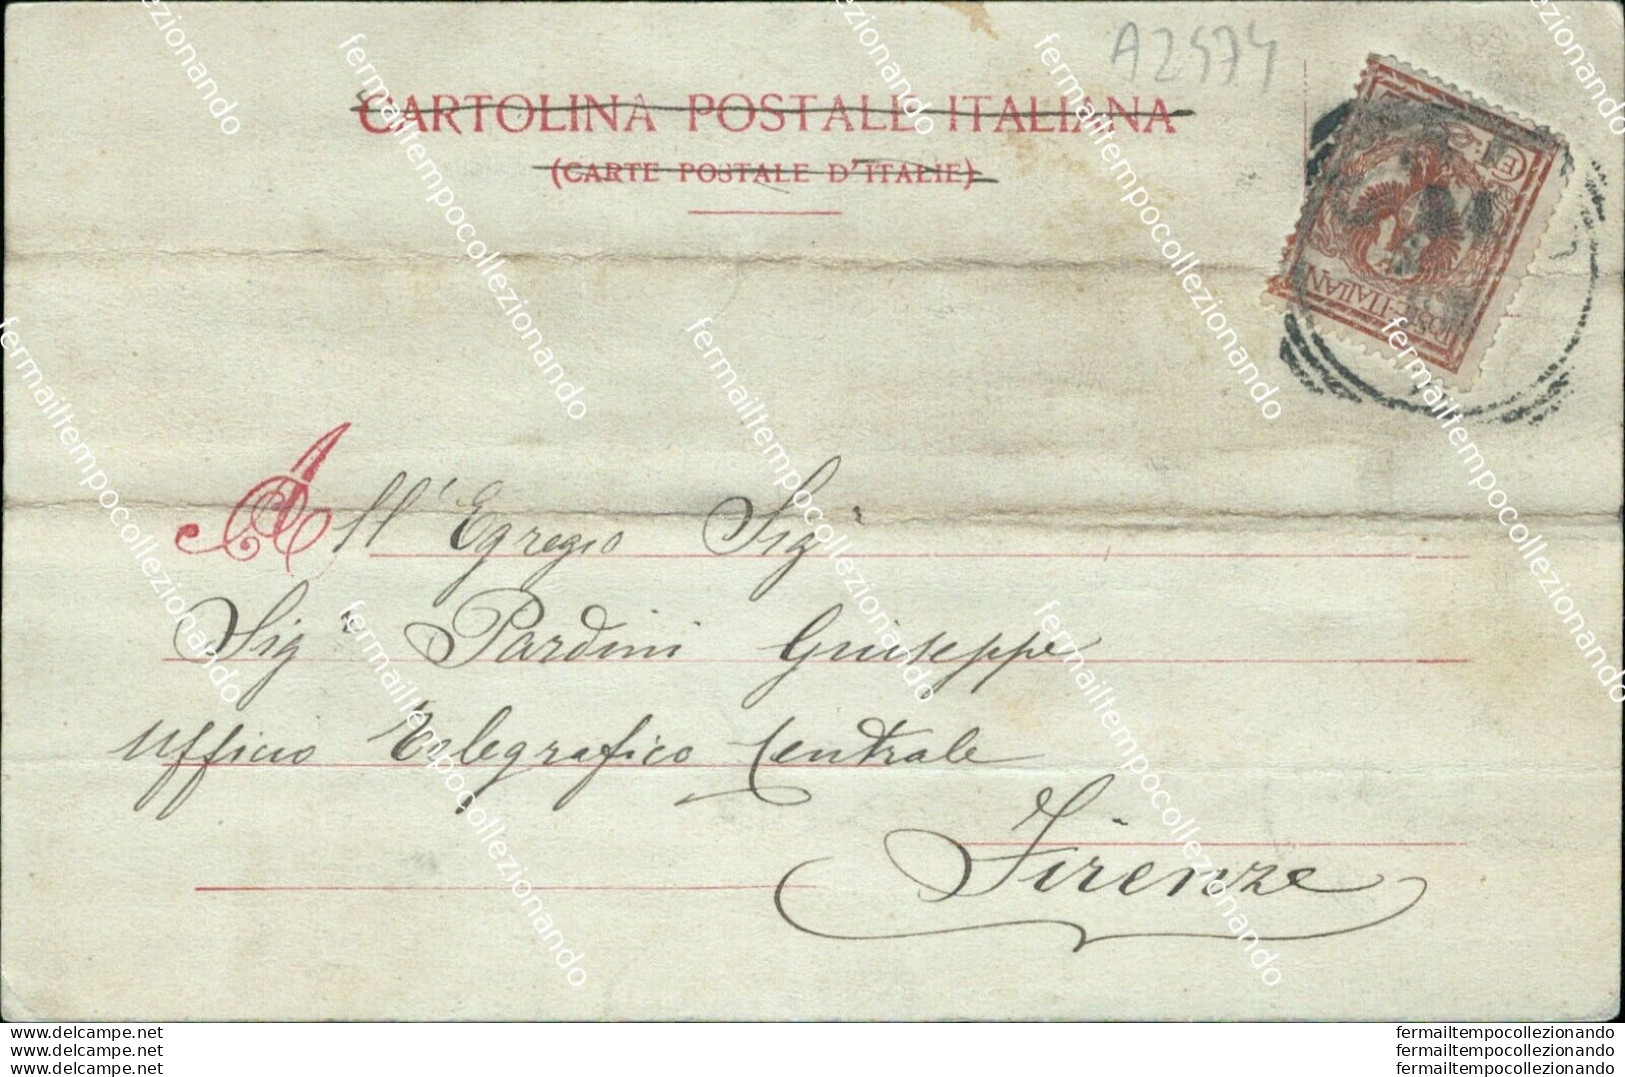 A2574
CARTOLINA POSTALE ITALIANA
(CARTE POSTALE D'ITALIE)
POSTE ITALIANE
All' Egregio Sig
Sig Pardini Giuseppe
Ufficio Telegrafico Centrale
Firenze
www.delcampe.net
www.delcampe.net
www.delcampe.net
fermailtempocollezionando
fermailtempocollezionando
fermailtempocollezionando